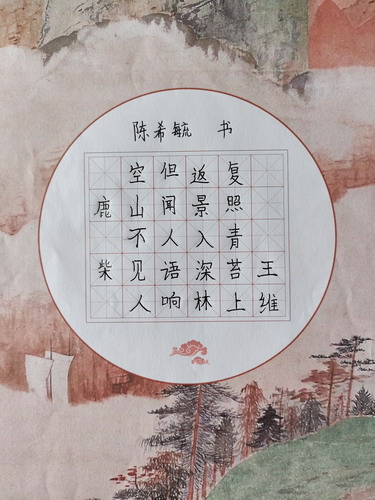 陈希毓 书
鹿柴
空山不见人
但闻人语响
返景入深林
复照青苔上
王维